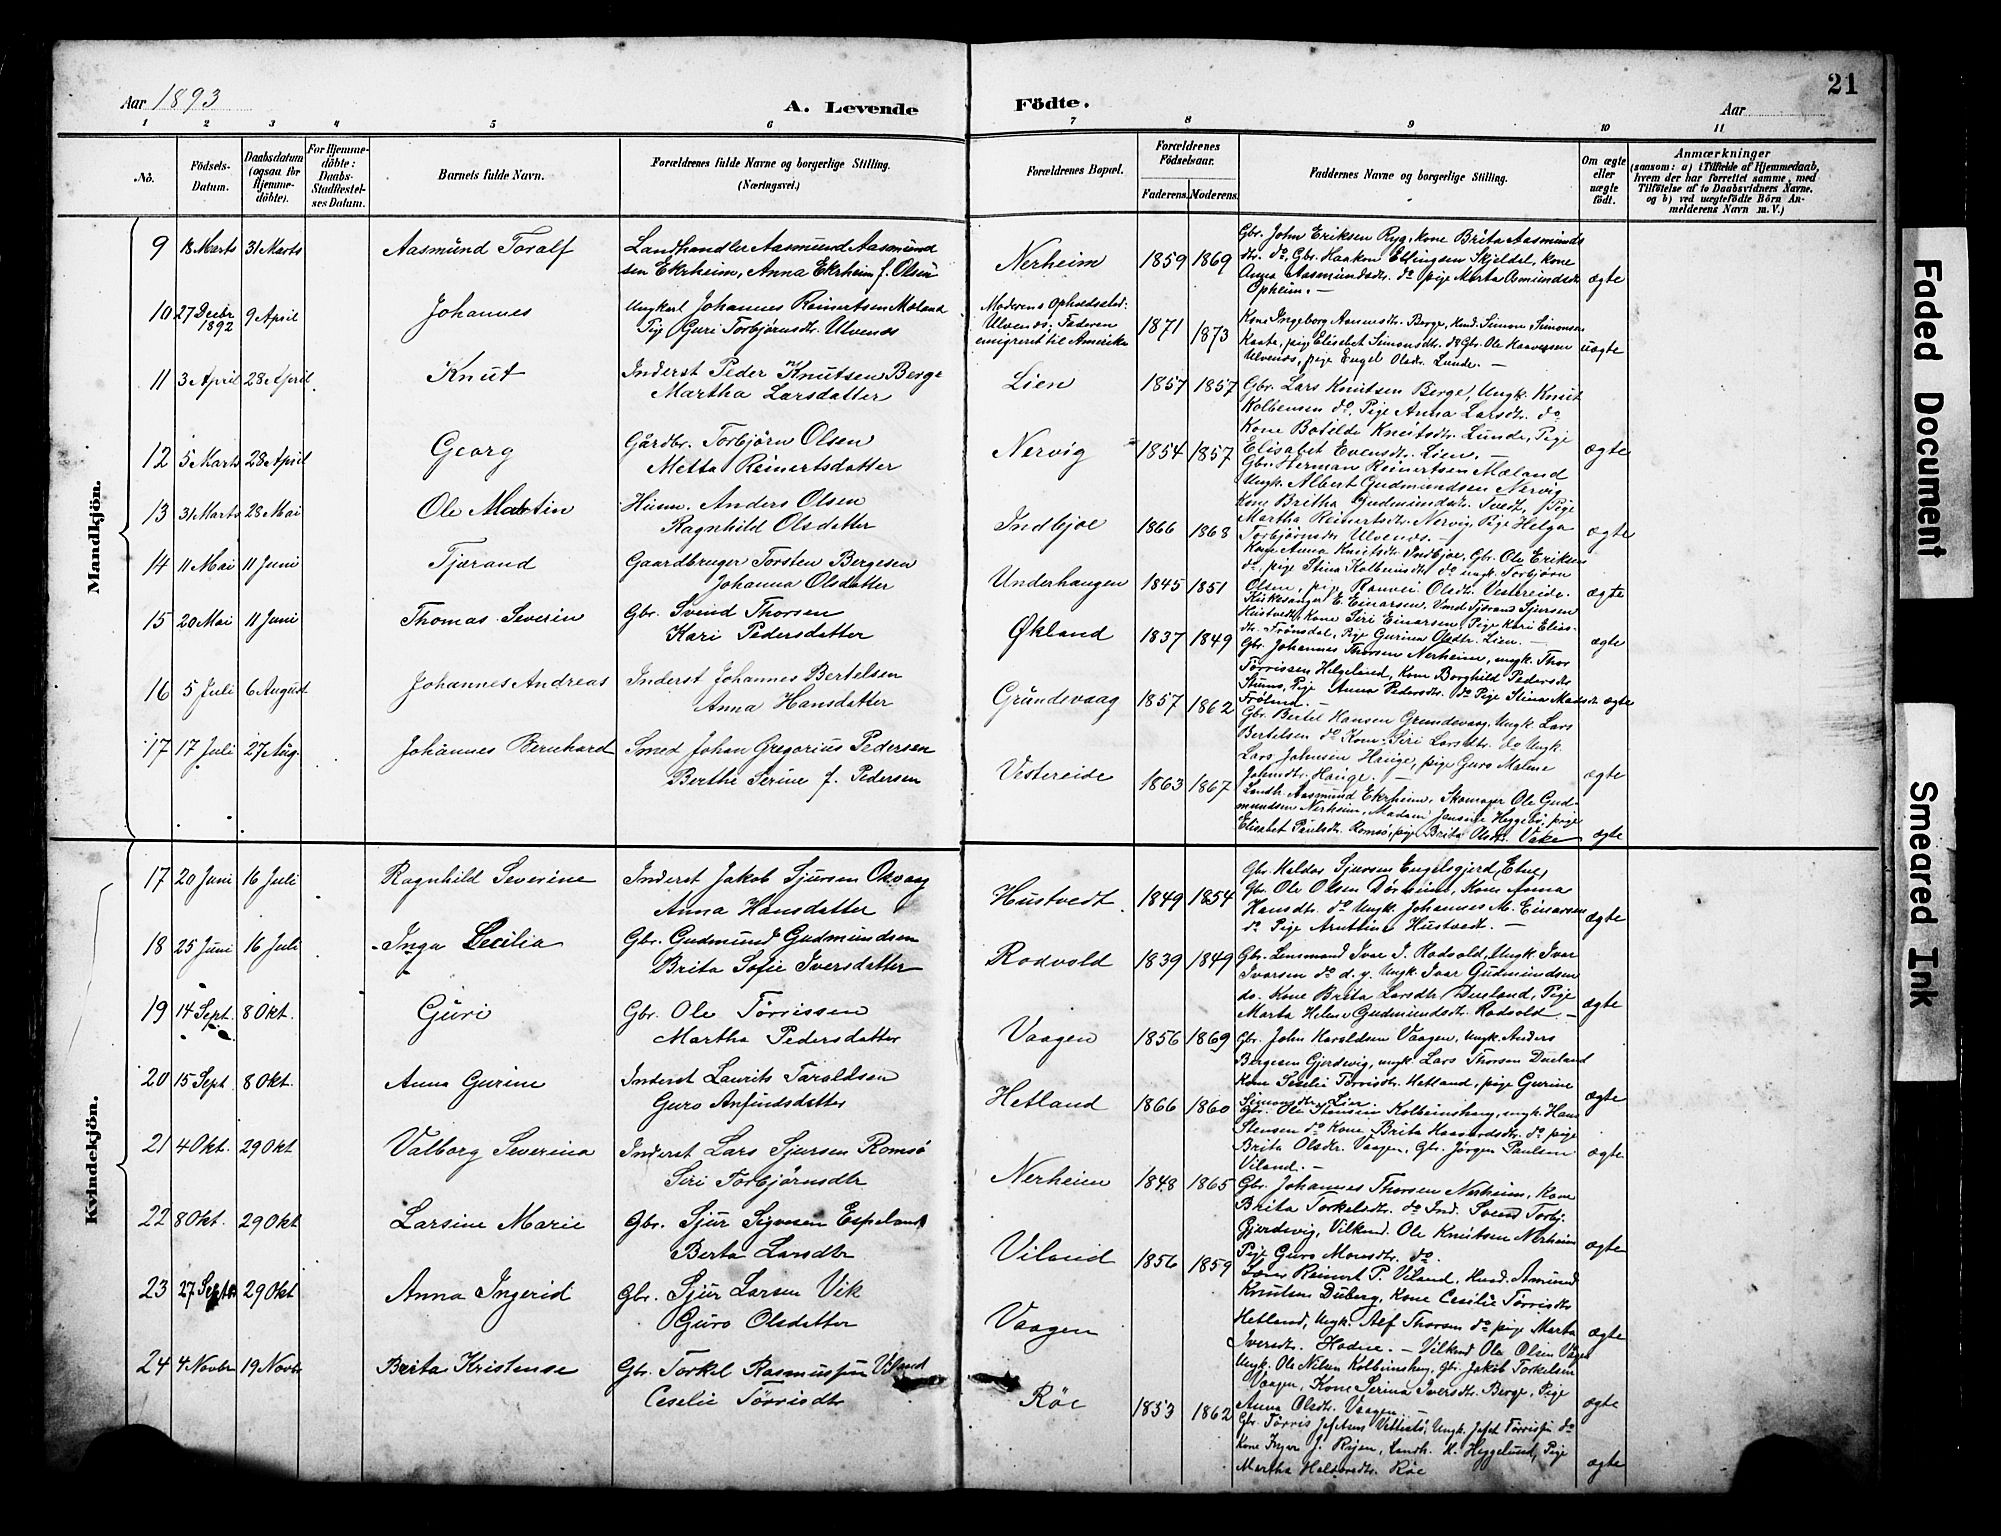 21
Aar 1893
A. Levende Födte.
Aar
1 2 3 4 5 6 7 8 9 10 11
No.
Födsels-Datum.
Daabsdatum (ogsaa for Hjemme-döbte).
For Hjemme-döbte: Daabs-Stadfæstel-ses Datum.
Barnets fulde Navn.
Forældrenes fulde Navne og borgerlige Stilling. (Næringsvei.)
Forældrenes Bopæl.
Forældrenes Födselsaar.
Faderens. Moderens.
Faddernes Navne og borgerlige Stilling.
Om ægte eller uægte födt.
Anmærkninger
(saasom: a) i Tilfælde af Hjemmedaab,
hvem der har forrettet samme, med
Tilföielse af to Daabsvidners Navne.
og b) ved uægtefödte Börn An-
melderens Navn m. V.)
Mandkjön.
9 18 Marts 31 Marts Aasmund Toralf Landhandler Aasmund Aasmund
sen Ekrheim, Anna Ekrheim f. Olsen
Nerheim 1859 1869
Gbr. John Eriksen Ryg, Kone Brita Aasmunds
dtr. do, Gbr. Haakon Ellingsen Skjeldal, Kone
Anna Aasmundsdtr. do pige Marta Asmundsdtr
Opheim. – ægte
10 27 Decbr 1892 9 April Johannes Ungkarl Johannes Reinertsen Mæland
Pig Guri Torbjørnsdtr. Ulvenes
Moderens Opholdssted:
Ulvenes. Faderen
emigreret til Amerika
1871 1873
Kone Ingeborg Aanensdtr. Berge, Simon Simonsen
Kaata, pige Elisabet Simonsdtr. do Gbr. Ole Haaversen
Ulvenes, pige Engel Olsdtr. Lunde. – uægte
11 3 April 28 April Knut Inderst Peder Knutsen Berge
Martha Larsdatter
Lien 1857 1857
Gbr. Lars Knutsen Berge, Ungk. Knut
Kolbensen do, Pige Anna Larsdtr. do
Kone Botilde Knutsdtr. Lunde, Pige
Elisabet Evensdtr. Lien. – ægte
12 5 Marts 28 April Georg Gårdbr. Torbjörn Olsen
Metta Reinertsdatter
Nervig 1854 1857
Gbr. Herman Reinertsen Mæland
Ungk. Albert Gudmundsen Nervig
Kone Britha Gudmundsdtr. Tvedt, Pige
Martha Reinertsdtr. Nervig, Pige Helga
Torbjørnsdtr Ulvenes. – ægte
13 31 Marts 28 Mai Ole Martin Husm. Anders Olsen
Ragnhild Olsdatter
Indbjoe 1866 1868
Kone Anna Knutsdtr. Indbjoe, Gbr. Ole Eriksen
do, pige Stina Kolbeinsdtr. do ungk. Torbjörn
Olsen, pige Ranvei Olsdtr. Vestereide. ægte
14 11 Mai 11 Juni Tjærand Gaardbruger Torsten Bergesen
Johanna Olsdatter
Underhaugen 1845 1851
Kirkesanger E. Einarsen, Tjerand Sjursen
Hustvedt, Kone Siri Einarsen, Pige Kari Elias-
dtr. Frönsdal, Pige Gurina Olsdtr. Lien. – ægte
15 20 Mai 11 Juni Thomas Severin Gbr. Svend Thorsen
Kari Pedersdatter
Økland 1837 1849
Gbr. Johannes Thorsen Nerheim, ungk. Thor
Törrissen Helgeland, Kone Borghild Pedersdtr
Stums, Pige Anna Pedersdtr. do Pige Stina Madsdtr
Frölund. – ægte
16 5 Juli 6 August Johannes Andreas Inderst Johannes Bertelsen
Anna Hansdatter
Grundevaag 1857 1862
Gbr. Bertel Hansen Grundevaag, Ungk. Lars
Bertelsen do, Kone Siri Larsdtr. do Ungk.
Lars Johnsen Hauge, pige Guro Malene
Johnsdtr. Hauge. – ægte
17 17 Juli 27 Aug. Johannes Bernhard Smed Johan Gregorius Pedersen
Berthe Serine f. Pedersen
Vestereide 1863 1867
Landh. Aasmund Ekrheim, Skomager Ole Gud-
mundsen Nerheim, Madam Jensine Heggebö, pige
Elisabet Paulsdtr. Romsö, pige Brita Olsdtr. Vake ægte
Kvindekjön.
17 20 Juni 16 Juli Ragnhild Severine Inderst Jakob Sjursen Osvaag
Anna Hansdatter
Hustvedt. 1849 1854
Gbr. Haldor Sjursen Engelsgjerd (Etne),
Gbr. Ole Olsen Dörheim, Kone Anna
Hansdtr. do Ungk. Johannes M. Einarsen
do Pige Hustvedt. – ægte
18 25 Juni 16 Juli Inga Cecilia Gbr. Gudmund Gudmundsen
Brita Sofie Iversdatter
Rodvold 1839 1849
Gbr. Lensmand Ivar I. Rodvold, Ungk. Ivar
Ivarsen do d. y. Ungk. Ivar Gudmundsen
do. Kone Brita Larsdtr. Dueland, Pige
Marta Helene Gudmundsdtr. Rodvold – ægte
19 14 Sept. 8 Okt. Guri Gbr. Ole Törrissen
Martha Pedersdatter
Vaagen 1856 1869
Gbr. John Haraldsen Vaagen, ungk. Anders
Bergesen Gjerdevig, ungk. Lars Thorsen Dueland
Kone Secelie Törrisdtr. Hetland, pige Gurine
Simonsdtr. Lien. ægte
20 15 Sept. 8 Okt. Anna Gurine Inderst Laurits Taroldsen
Guro Anfindsdatter
Hetland 1866 1860
Gbr. Ole Stensen Kolbeinshaug, ungk. Hans
Stensen do Kone Brita Haavardsdtr. do pige
Brita Olsdtr. Vaagen, Gbr. Jörgen Paulsen
Viland. – ægte
21 4 Okt. 29 Okt Valborg Severina Inderst Lars Sjursen Romsö
Siri Torbjörnsdtr
Nerheim 1848 1865
Gbr. Johannes Thorsen Nerheim, Kone
Brita Torkelsdtr. do Ind. Svend Torbj.
Gjerdevig, Vilkend. Ole Knutsen Nerheim
Pige Guro Monsdtr. do. ægte
22 8 Okt. 29 Okt Larsine Marie Gbr. Sjur Sigvesen Espeland
Berta Larsdtr
Viland 1856 1859
Lærer Reinert P. Viland, Amund
Knutsen Duberg, Kone Cesilie Törrisdtr
Hetland, Ungk. Alf Thorsen do pige Marta
Iversdtr. Hodne. – ægte
23 27 Septr 29 Okt Anna Ingerid Gbr. Sjur Larsen Vik
Guro Olsdatter
Vaagen
Vilkend Ole Olsen Vågen
Ungk. Ole Nilsen Kolbeinshaug, Gbr. Jakob Torkelsen
Vaagen, Kone Serina Iversdtr. Berge, Pige
Anna Olsdtr. Vaagen. – ægte
24 4 Novbr 19 Novbr Berita Kristense Gbr. Torkel Rasmussen Viland
Ceselie Törrisdtr
Röe 1853 1862
Gbr. Törris Jofetsen Vettestö, Ungk. Jofet Törrisen do
Kone Inger J. Röen, Landh. H. Heggelund, Pige
Martha Halvorsdtr. Röe ægte
Faded Document
Smeared Ink